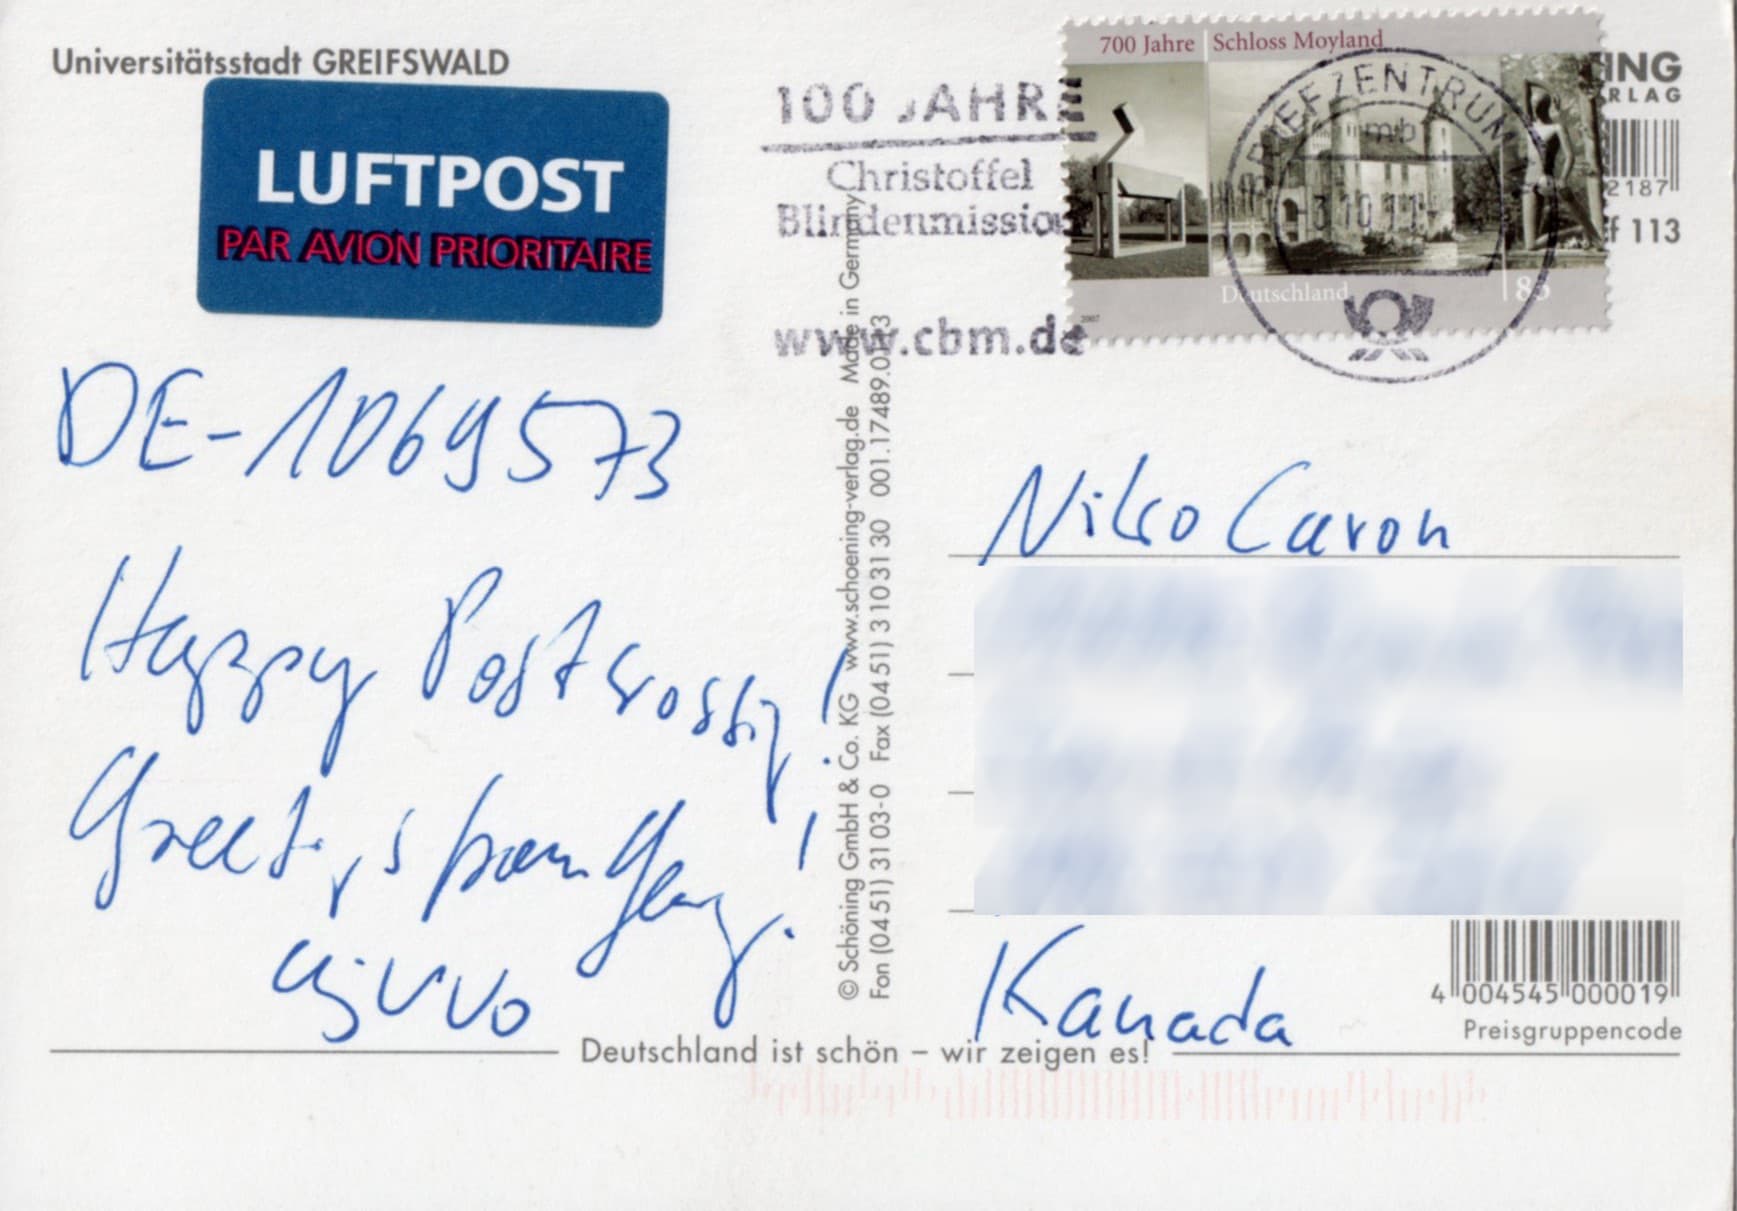 Universitätsstadt GREIFSWALD
LUFTPOST
PAR AVION PRIORITAIRE
100 JAHRE
Christoffel
Blindenmission
www.cbm.de
700 Jahre | Schloss Moyland
Deutschland
85
2007
BRIEFZENTRUM
mb
-3.10.11
ING
RLAG
2187
f 113
DE-1069573
Happy Postcrossing!
Greetings from Germany!
© Schöning GmbH & Co. KG www.schoening-verlag.de Made in Germany
Fon (04 51) 31 03-0 Fax (04 51) 3 10 31 30 001.17489.0113
Niko Caron
Kanada
4 004545 000019
Preisgruppencode
Deutschland ist schön – wir zeigen es!